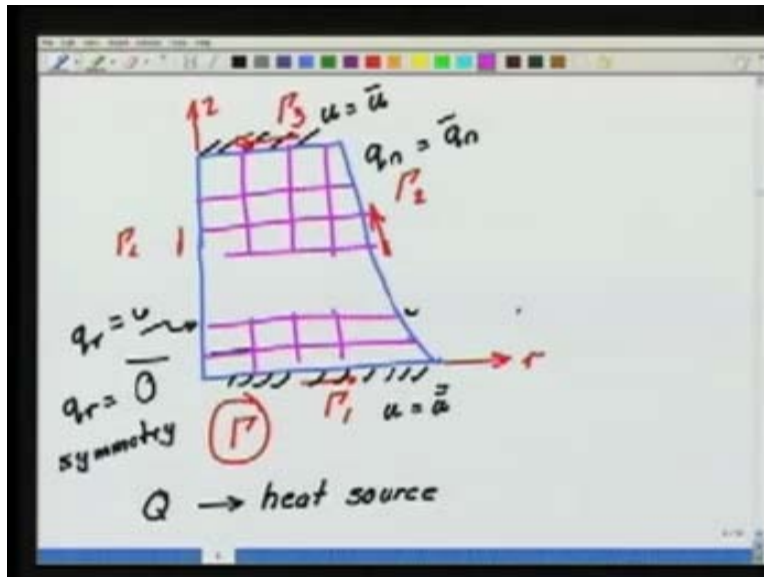 z
Γ₃
u = ū
qₙ = q̄ₙ
Γ₂
Γ₄
qᵣ = 0
qᵣ = 0
symmetry
Γ
Γ₁
u = ū̄
r
Q → heat source